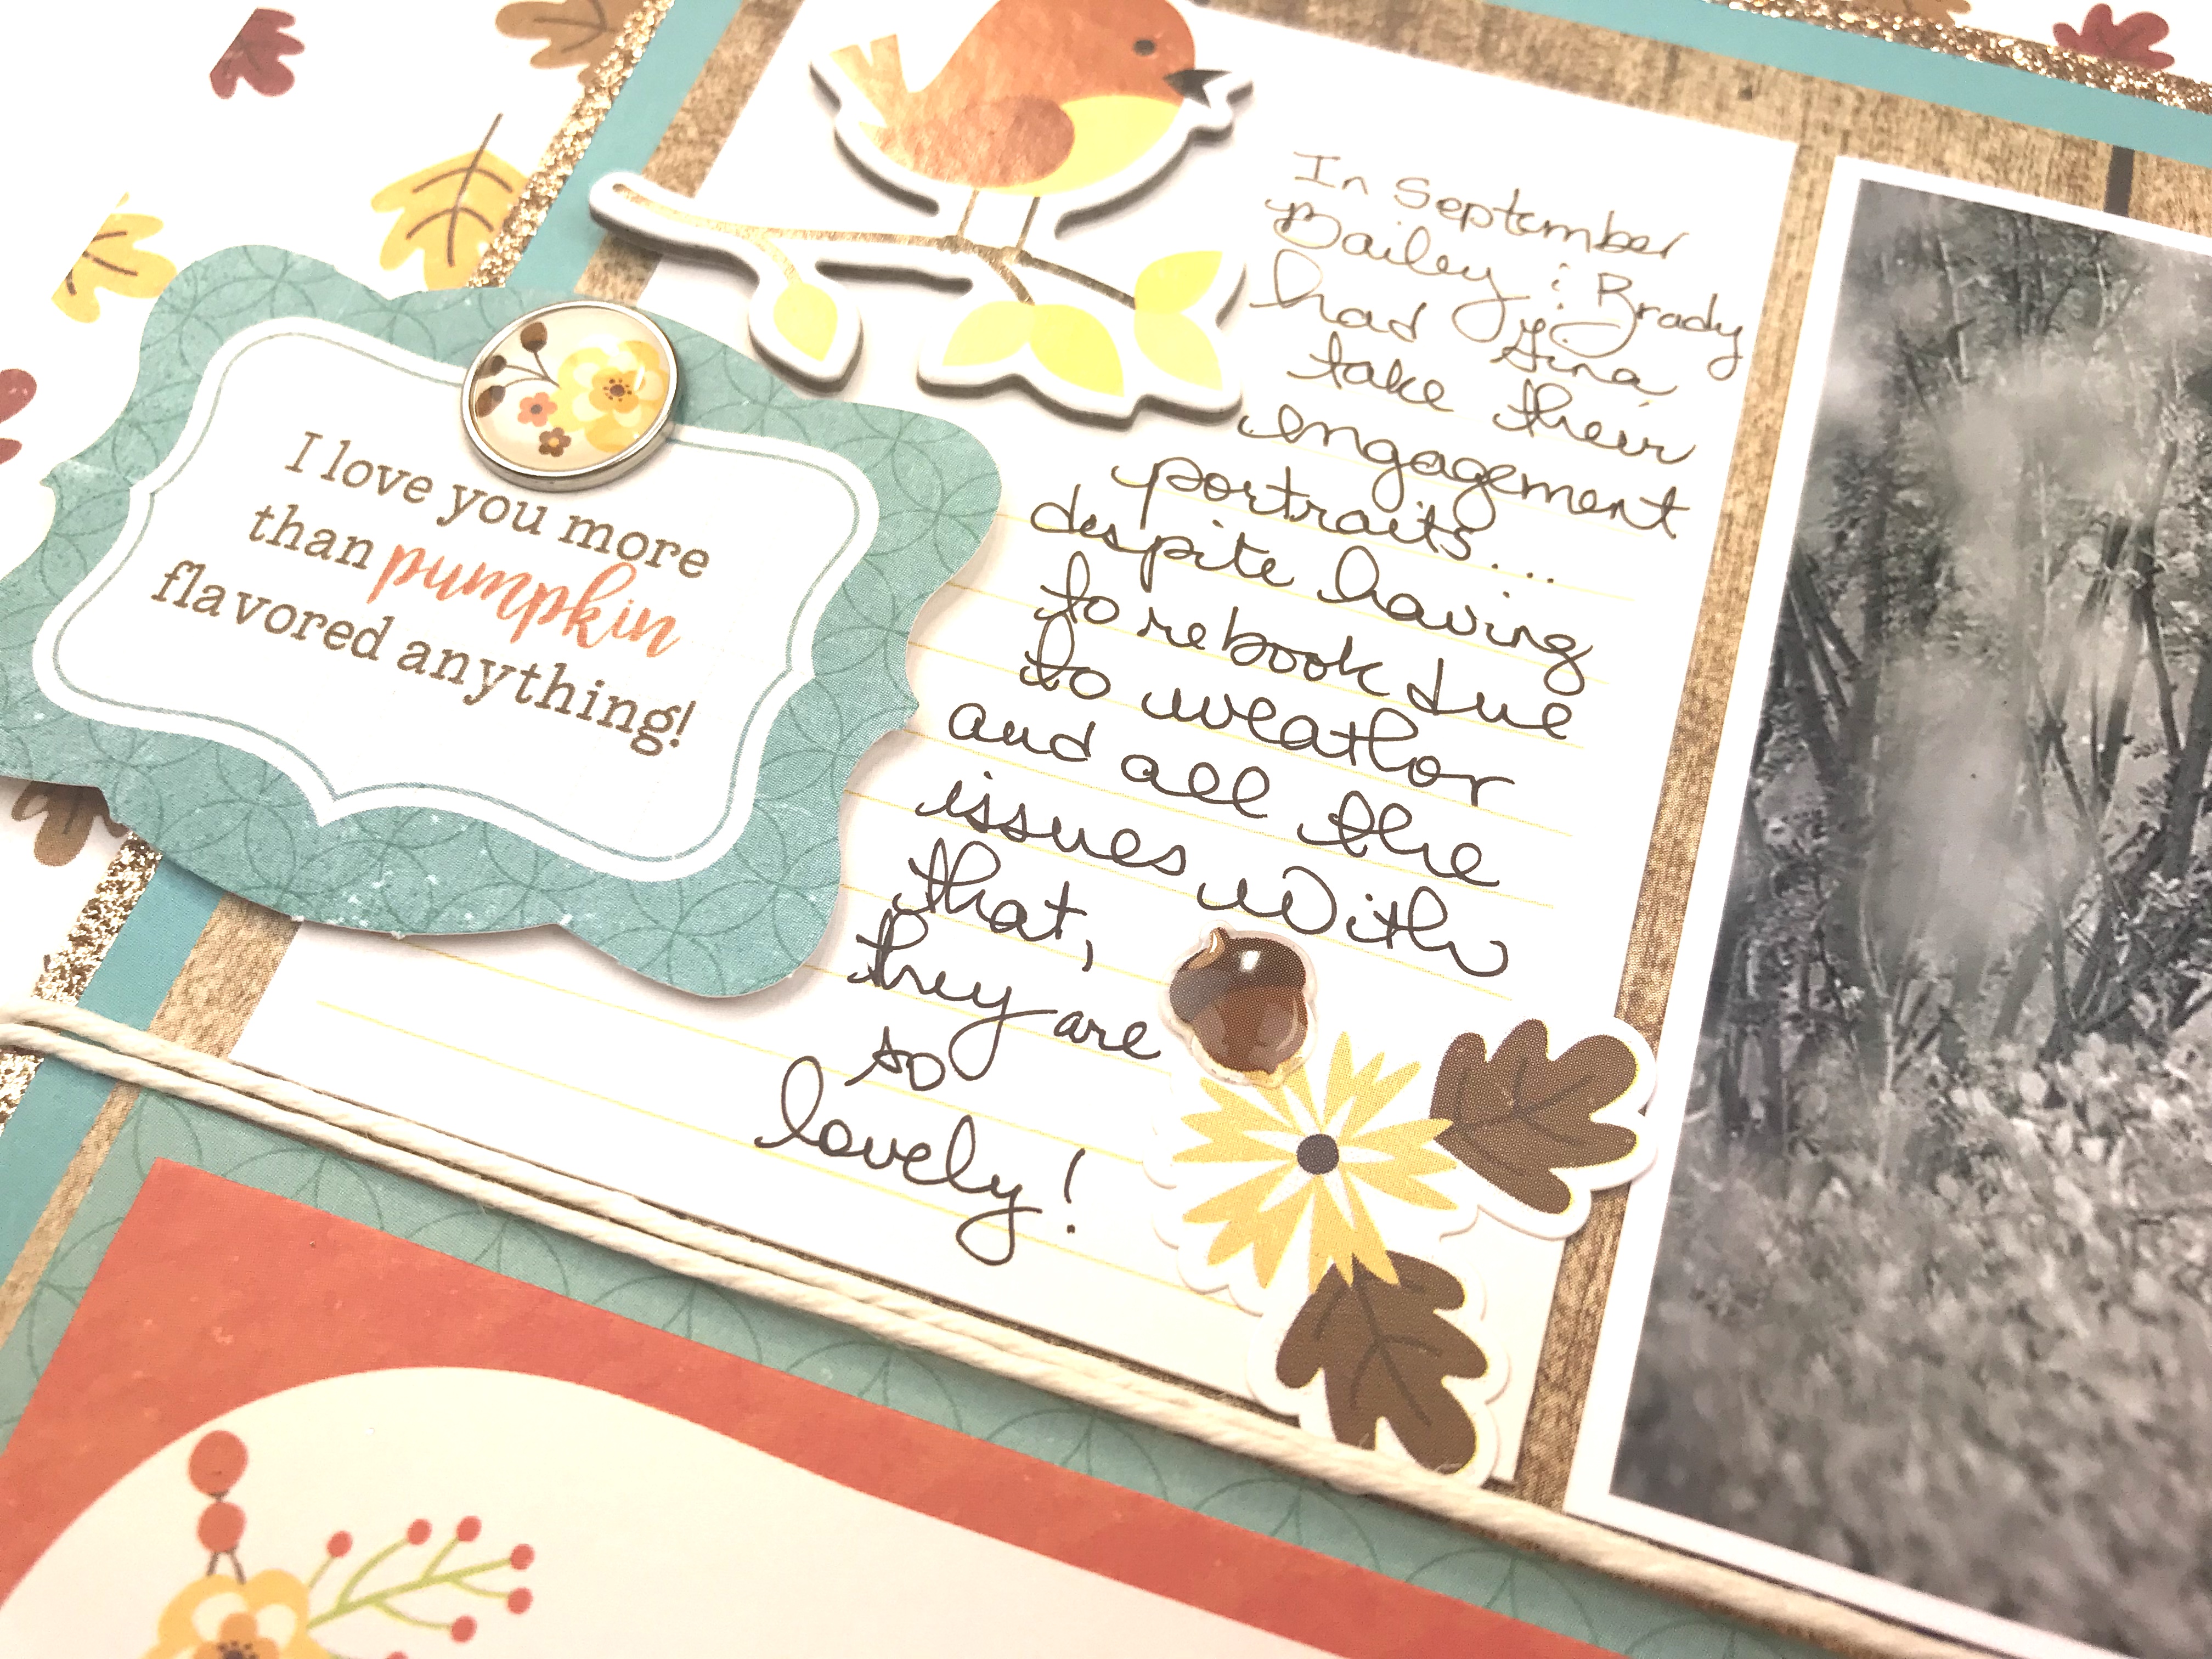 I love you more
than pumpkin
flavored anything!
In September
Bailey & Brady
had Gina
take their
engagement
portraits...
despite having
to rebook due
to weather
and all the
issues with
that,
they are
so
lovely!